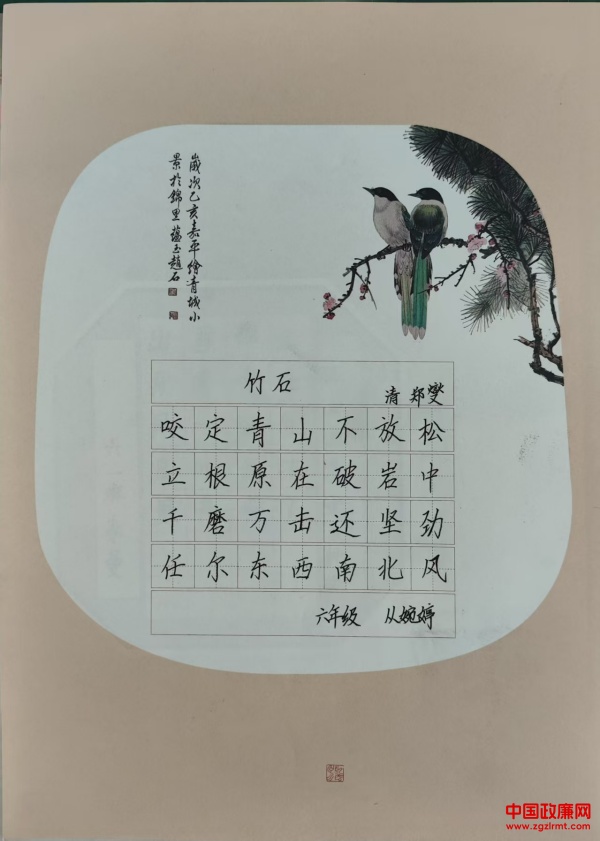 歲次乙亥嘉平繪青城小
景於錦里蘊玉趙石
竹石
清 郑燮
咬定青山不放松
立根原在破岩中
千磨万击还坚劲
任尔东西南北风
六年级 从婉婷
中国政廉网
www.zgzlrmt.com